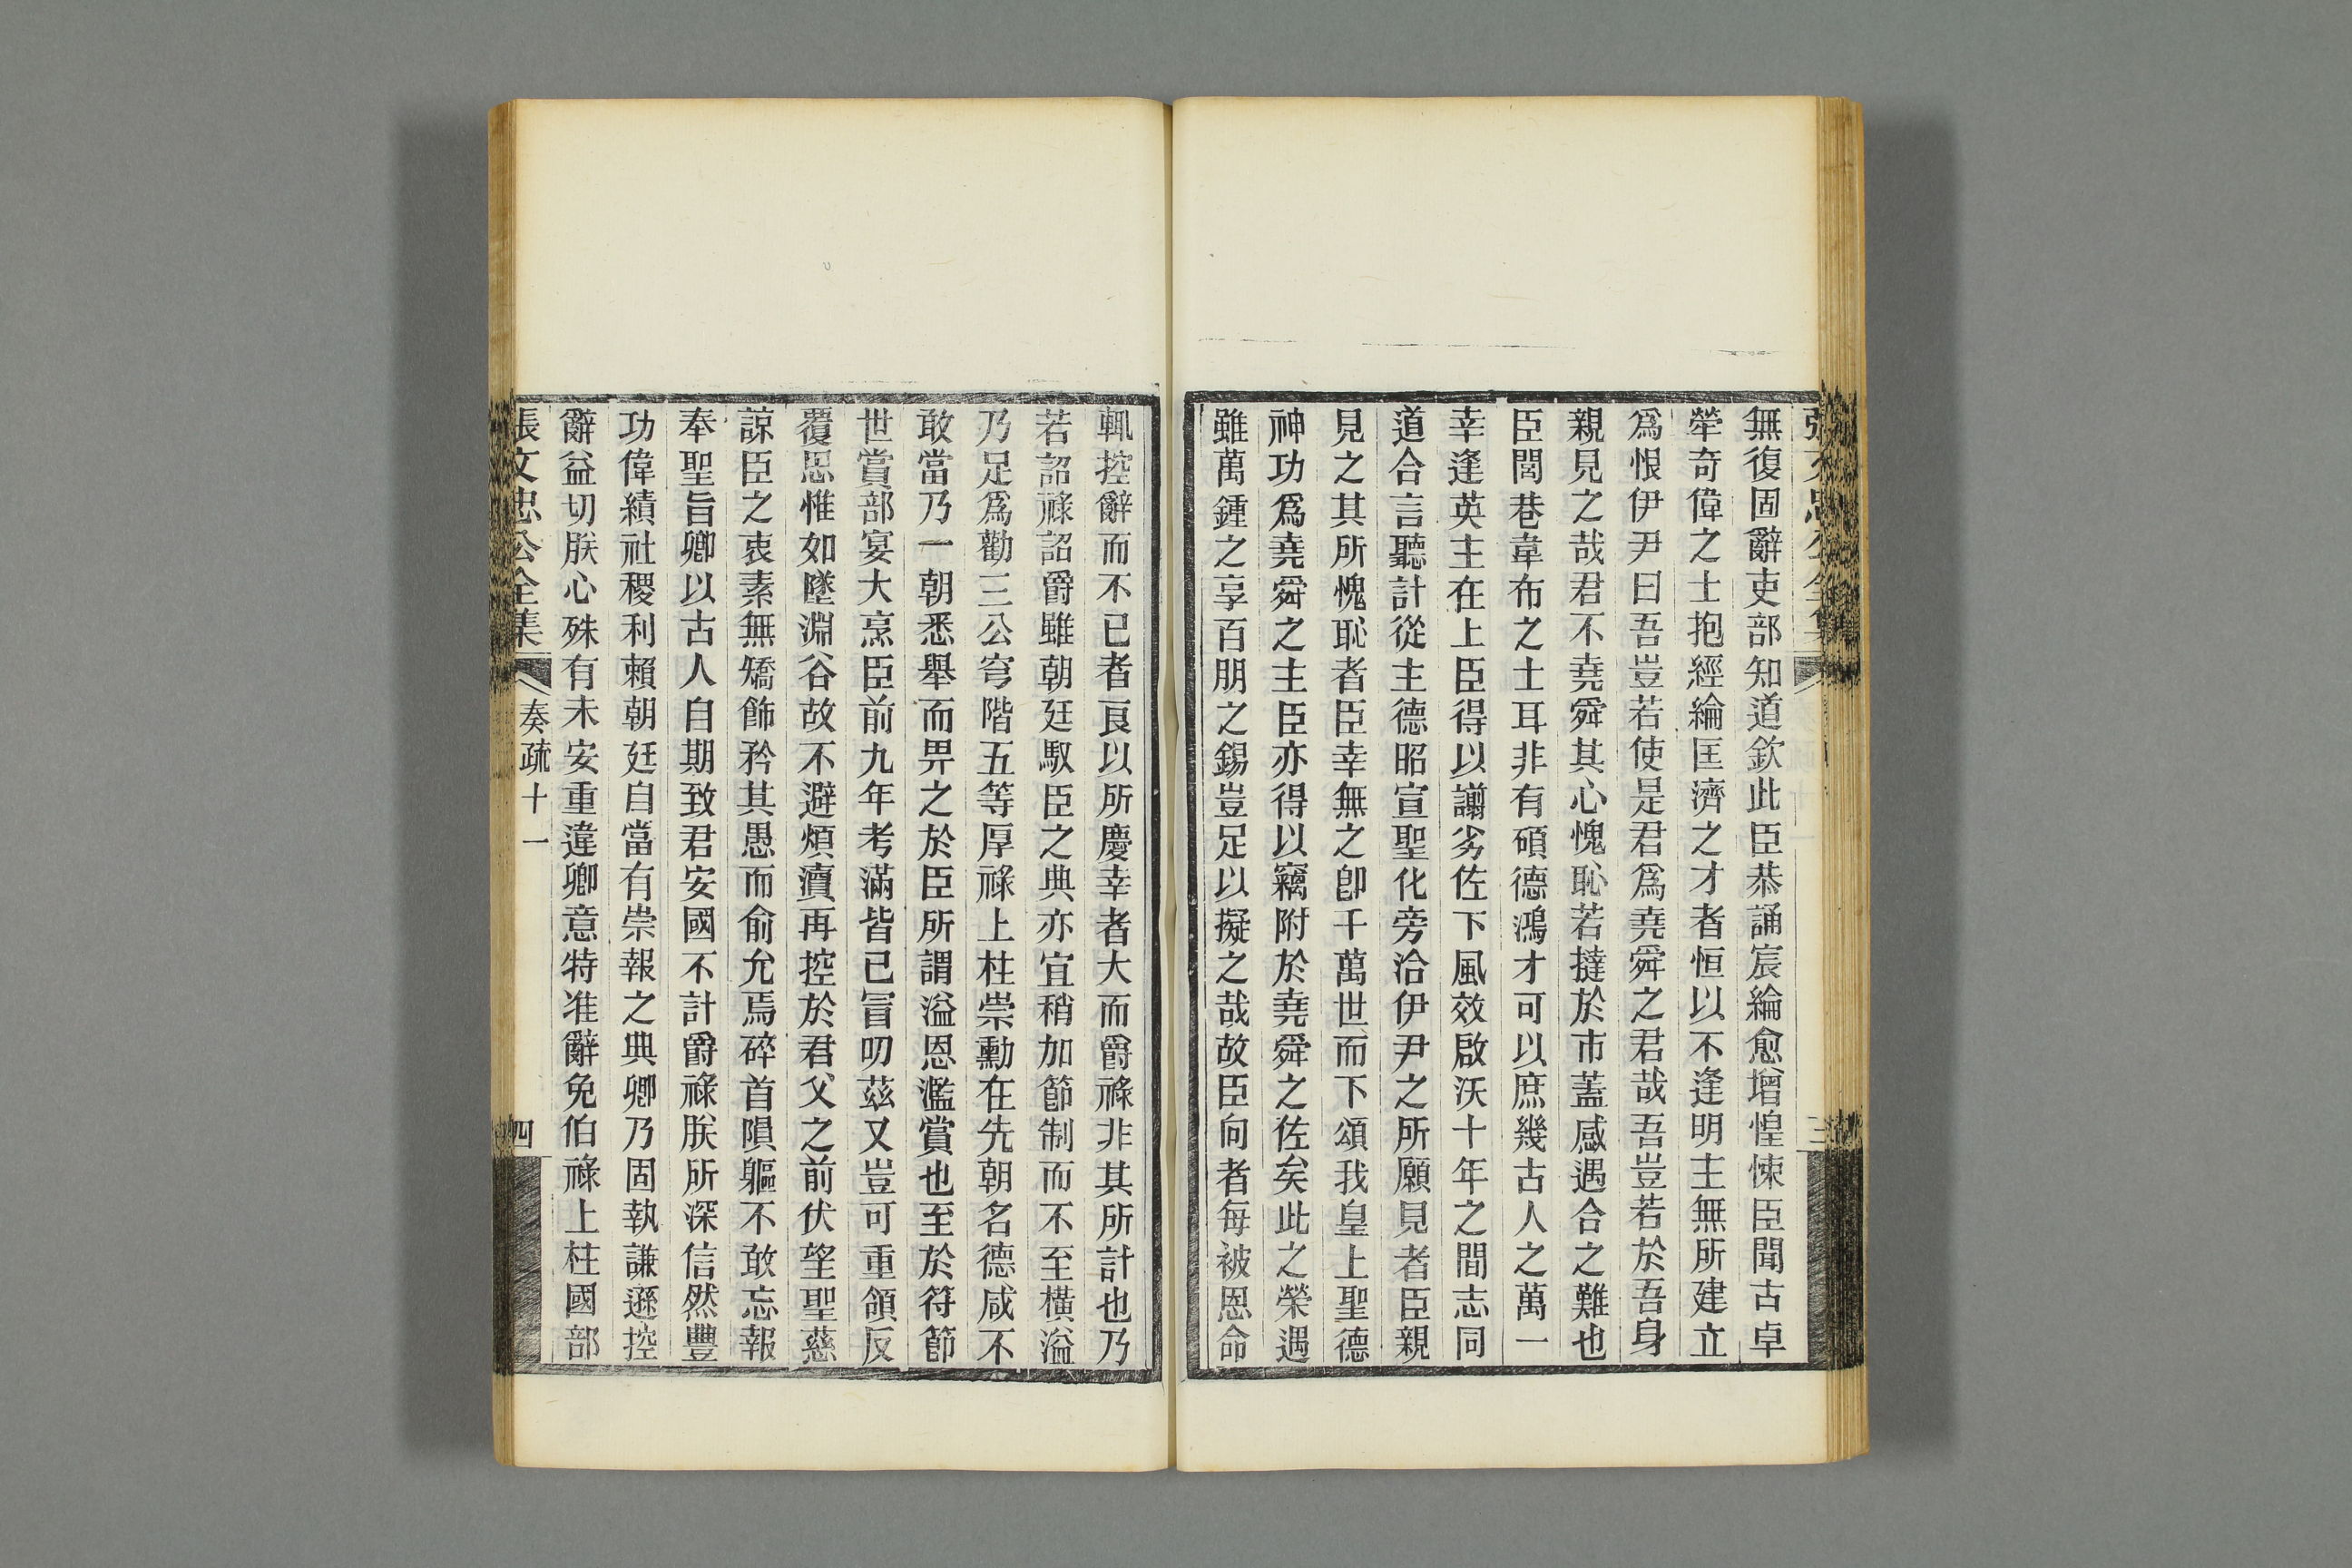 無復固辭吏部知道欽此臣恭誦宸綸愈增惶悚臣聞古卓
犖奇偉之士抱經綸匡濟之才者恒以不逢明主無所建立
爲恨伊尹曰吾豈若使是君爲堯舜之君哉吾豈若於吾身
親見之哉君不堯舜其心愧恥若撻於市蓋感遇合之難也
臣閭巷韋布之士耳非有碩德鴻才可以庶幾古人之萬一
幸逢英主在上臣得以譾劣佐下風效啟沃十年之間志同
道合言聽計從主德昭宣聖化旁洽伊尹之所願見者臣親
見之其所愧恥者臣幸無之卽千萬世而下頌我皇上聖德
神功爲堯舜之主臣亦得以竊附於堯舜之佐矣此之榮遇
雖萬鍾之享百朋之錫豈足以擬之哉故臣向者每被恩命
輒控辭而不已者良以所慶幸者大而爵祿非其所計也乃
若詔祿詔爵雖朝廷馭臣之典亦宜稍加節制而不至橫溢
乃足爲勸三公穹階五等厚祿上柱崇勳在先朝名德咸不
敢當乃一朝悉舉而畀之於臣所謂溢恩濫賞也至於符節
世賞部宴大烹臣前九年考滿皆已冒叨茲又豈可重領反
覆思惟如墜淵谷故不避煩瀆再控於君父之前伏望聖慈
諒臣之衷素無矯飾矜其愚而俞允焉碎首隕軀不敢忘報
奉聖旨卿以古人自期致君安國不計爵祿朕所深信然豐
功偉績社稷利賴朝廷自當有崇報之典卿乃固執謙遜控
辭益切朕心殊有未安重違卿意特准辭免伯祿上柱國部
張文忠公全集 奏疏十一 四